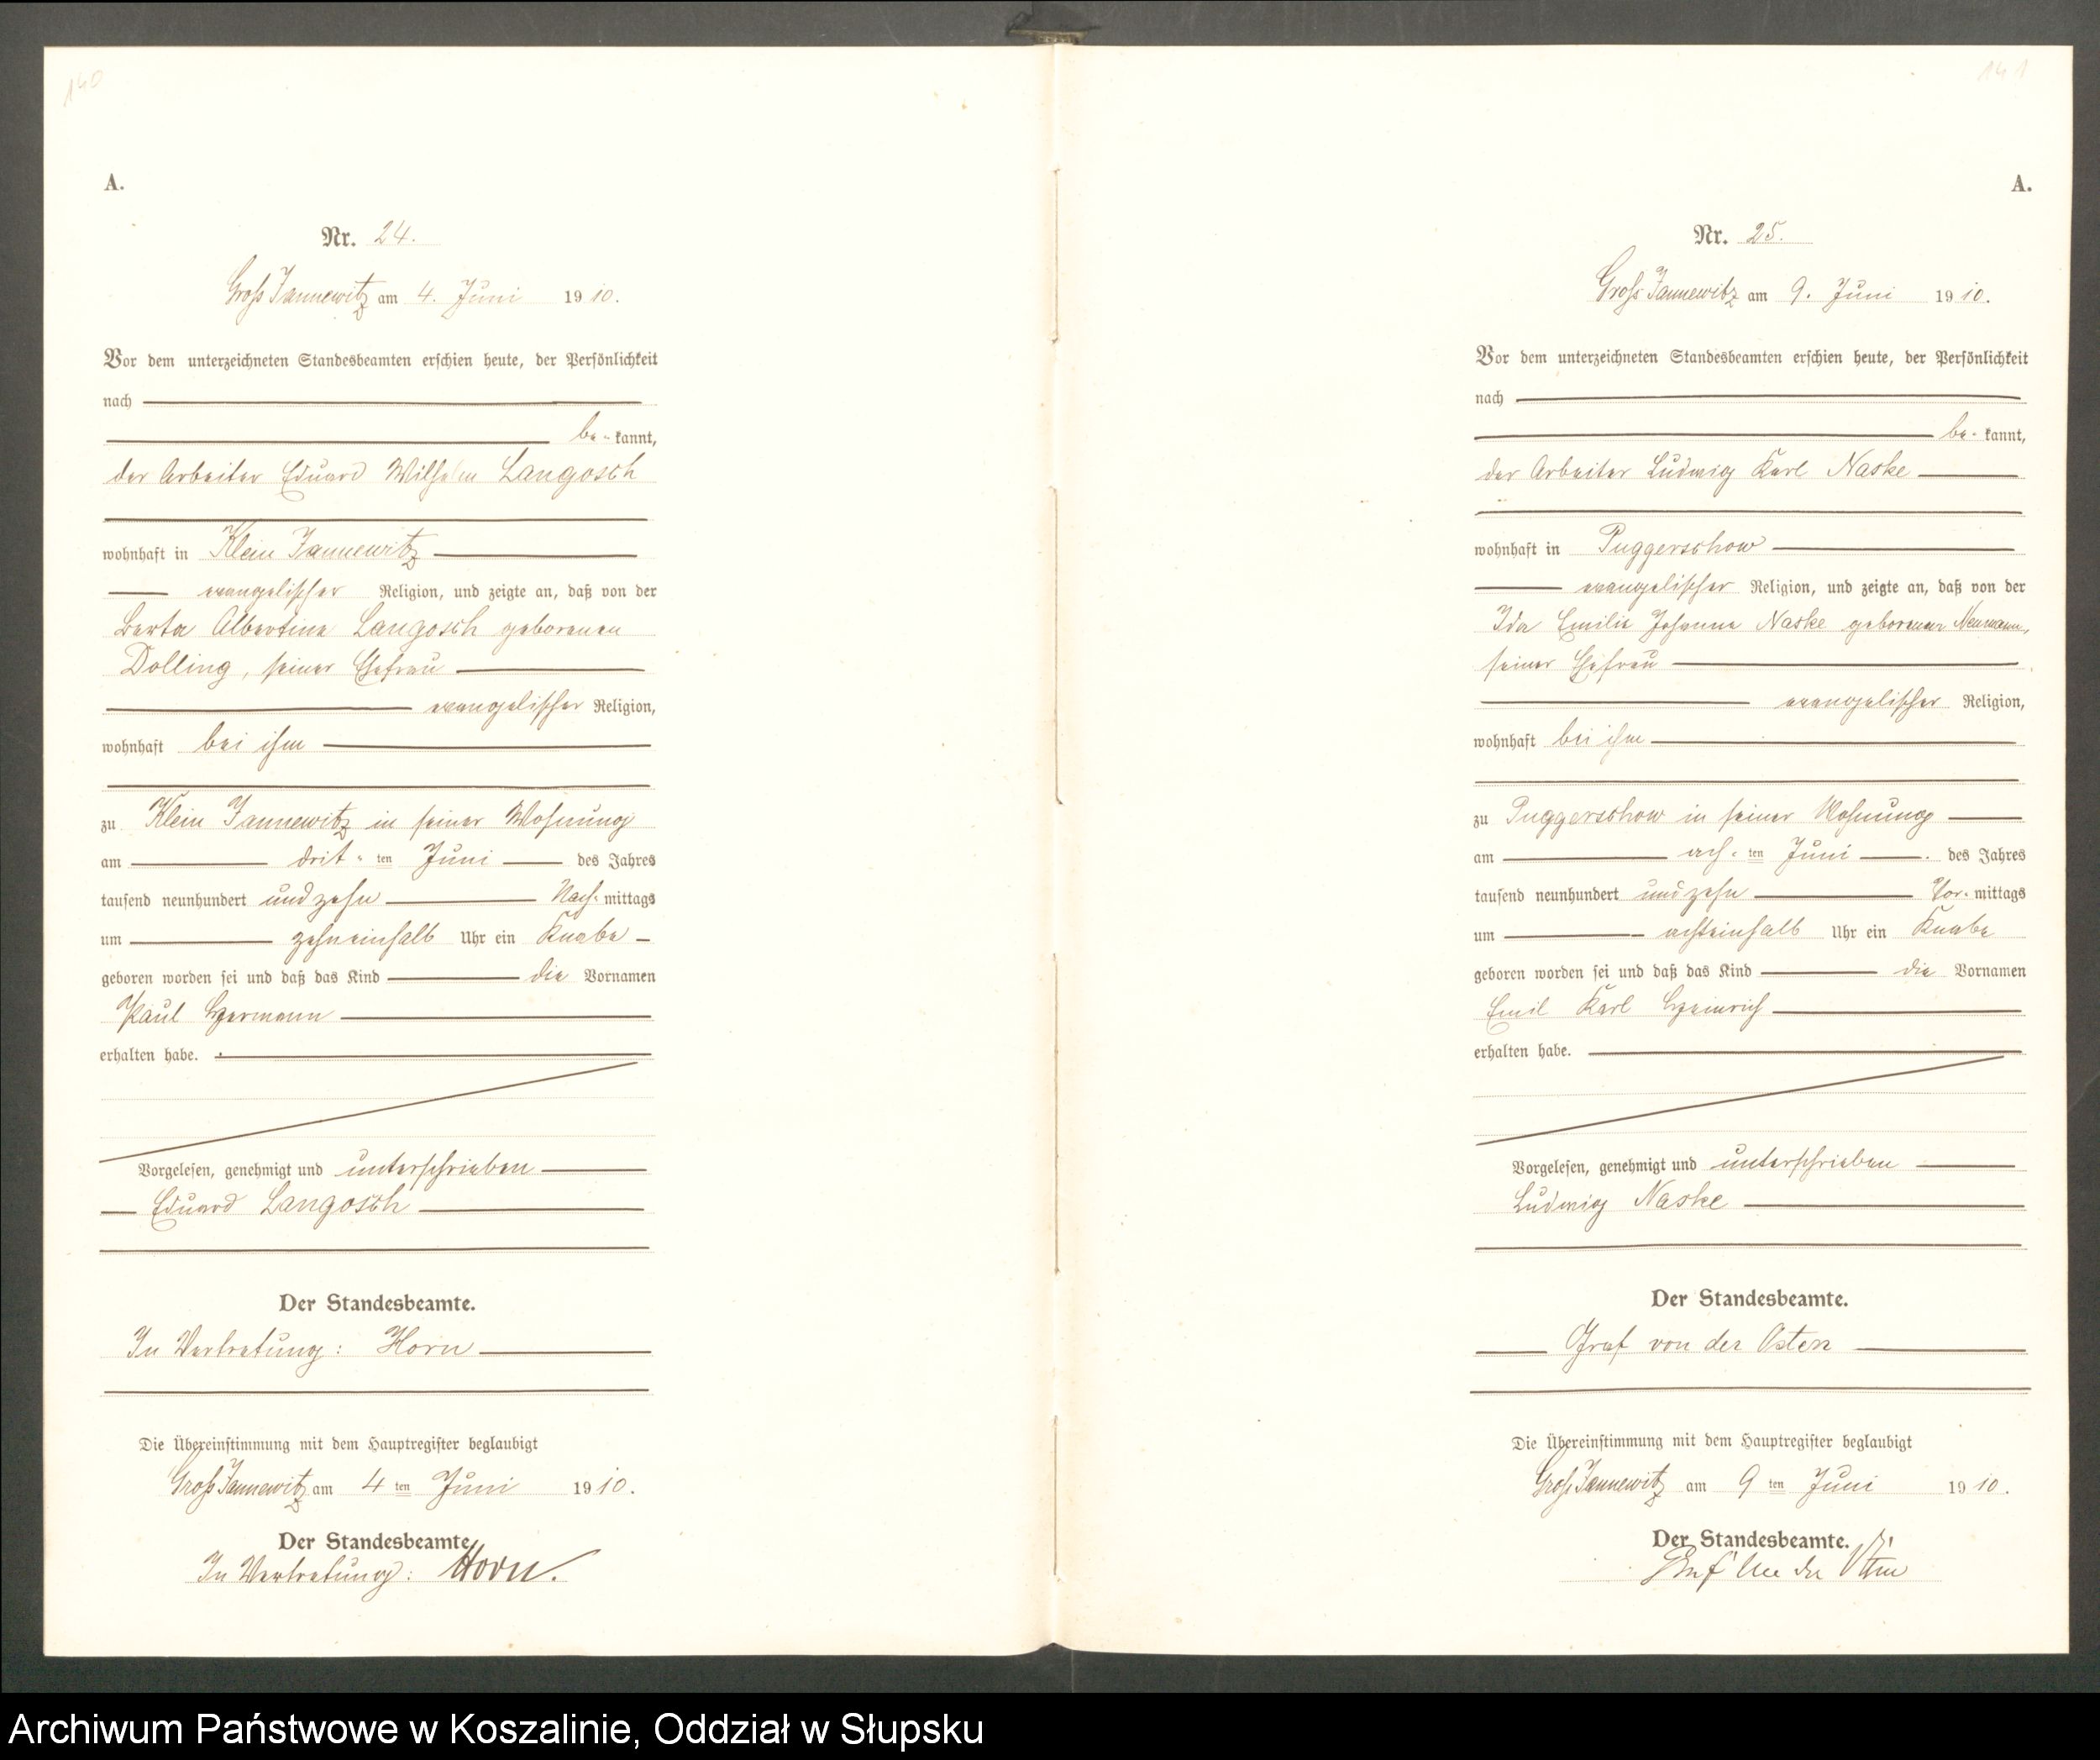 140
A.
Nr. 24.
Groß Jannewitz am 4. Juni 1910.
Vor dem unterzeichneten Standesbeamten erschien heute, der Persönlichkeit
nach
be- kannt,
der Arbeiter Eduard Wilhelm Langosch
wohnhaft in Klein Jannewitz
evangelischer Religion, und zeigte an, daß von der
Berta Albertine Langosch geborenen
Dolling, seiner Ehefrau
evangelischer Religion,
wohnhaft bei ihm
zu Klein Jannewitz in seiner Wohnung
am drit- ten Juni des Jahres
tausend neunhundert undzehn Nach- mittags
um zehneinhalb Uhr ein Knabe
geboren worden sei und daß das Kind die Vornamen
Paul Hermann
erhalten habe.
Vorgelesen, genehmigt und unterschrieben
Eduard Langosch
Der Standesbeamte.
In Vertretung: Horn
Die Übereinstimmung mit dem Hauptregister beglaubigt
Groß Jannewitz am 4 ten Juni 1910.
Der Standesbeamte
In Vertretung: Horn.
141
A.
Nr. 25.
Groß Jannewitz am 9. Juni 1910.
Vor dem unterzeichneten Standesbeamten erschien heute, der Persönlichkeit
nach
be- kannt,
der Arbeiter Ludwig Karl Naske
wohnhaft in Puggerschow
evangelischer Religion, und zeigte an, daß von der
Ida Emilie Johanna Naske geborenen Neumann,
seiner Ehefrau
evangelischer Religion,
wohnhaft bei ihm
zu Puggerschow in seiner Wohnung
am ach- ten Juni des Jahres
tausend neunhundert undzehn Vor- mittags
um achteinhalb Uhr ein Knabe
geboren worden sei und daß das Kind die Vornamen
Emil Karl Heinrich
erhalten habe.
Vorgelesen, genehmigt und unterschrieben
Ludwig Naske
Der Standesbeamte.
Graf von der Osten
Die Übereinstimmung mit dem Hauptregister beglaubigt
Groß Jannewitz am 9 ten Juni 1910.
Der Standesbeamte.
Graf von der Osten
Archiwum Państwowe w Koszalinie, Oddział w Słupsku